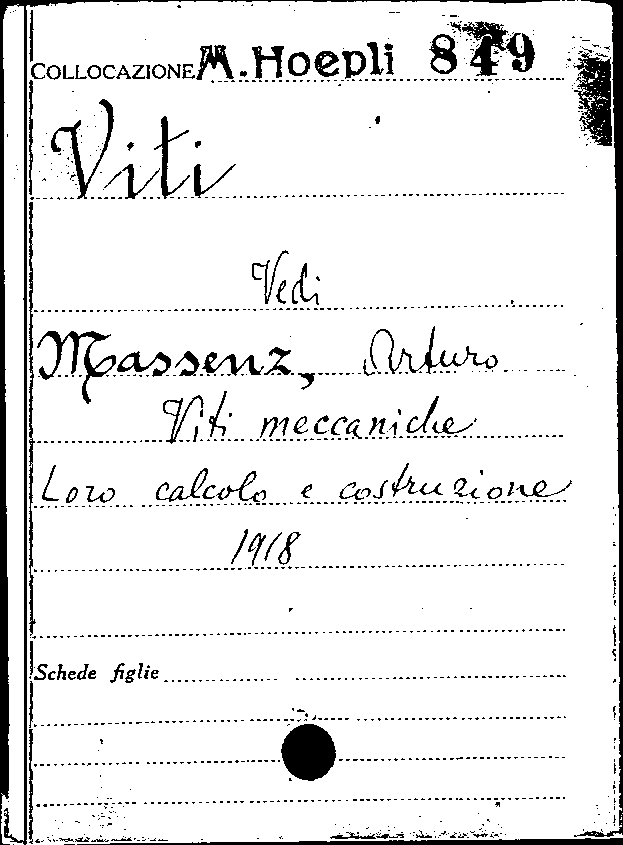 COLLOCAZIONE M. Hoepli 849
Viti
Vedi
Massenz, Arturo
Viti meccaniche
Loro calcolo e costruzione
1918
Schede figlie